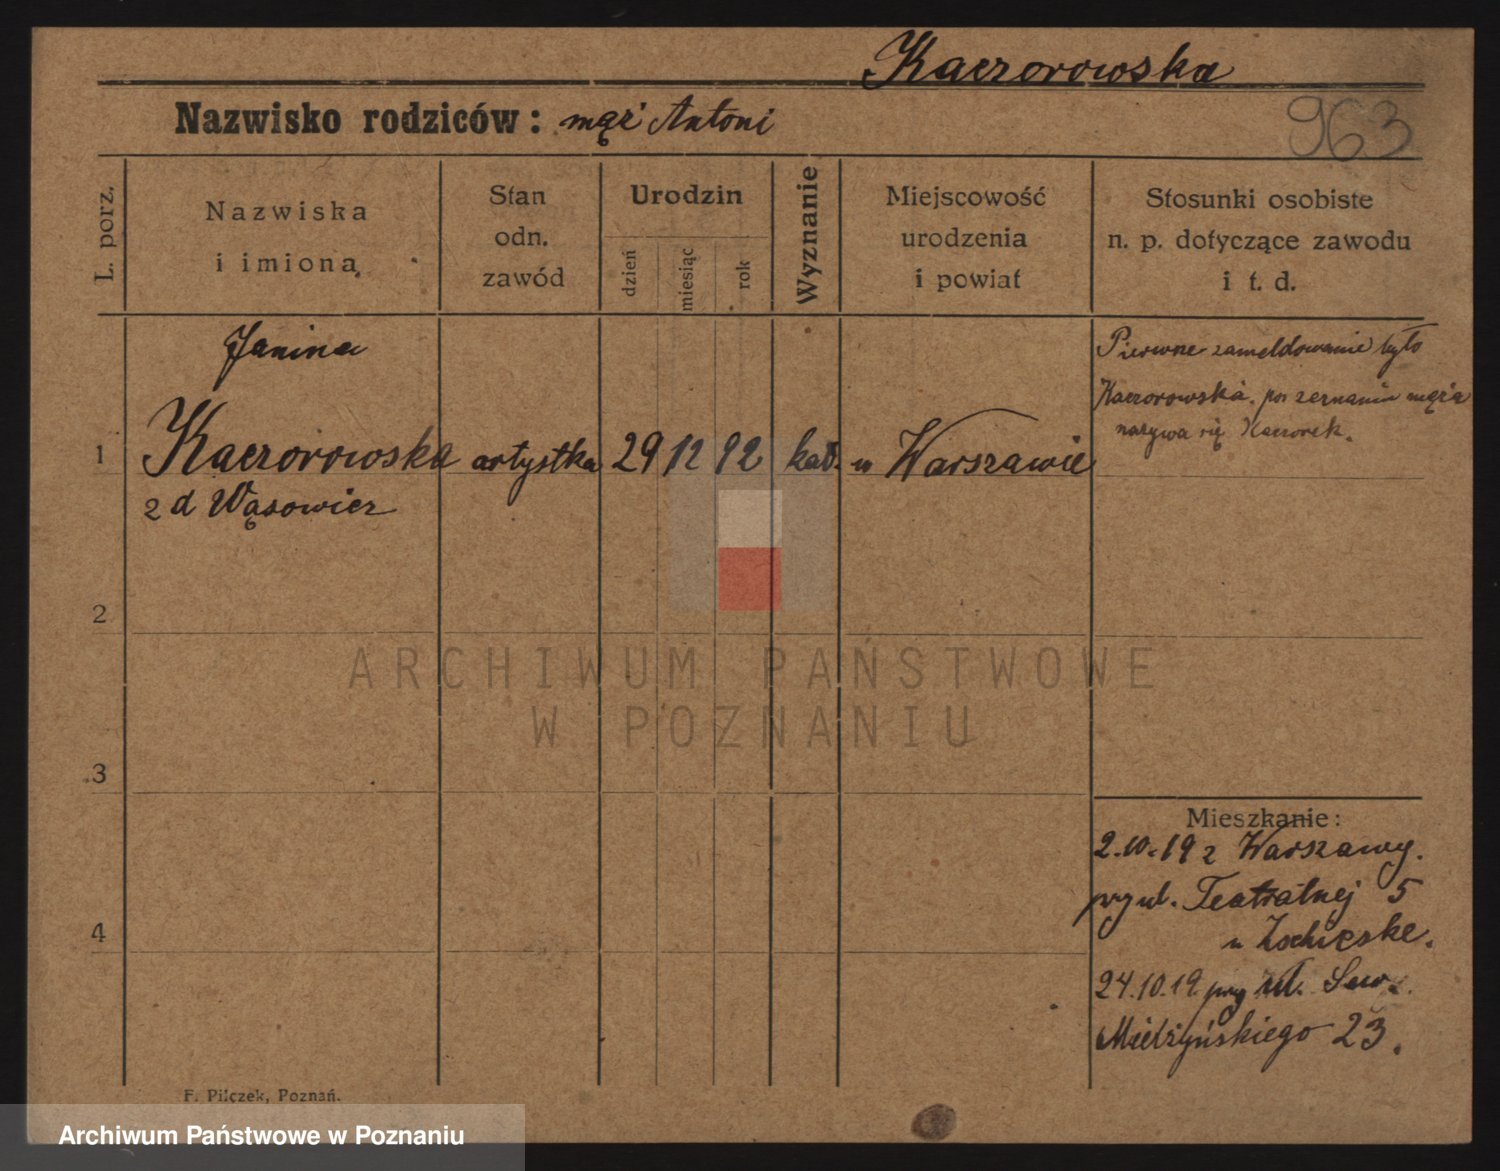 Kaczorowska
Nazwisko rodziców: mąż Antoni
963
L. porz.
Nazwiska
i imiona
Stan
odn.
zawód
Urodzin
dzień
miesiąc
rok
Wyznanie
Miejscowość
urodzenia
i powiat
Stosunki osobiste
n. p. dotyczące zawodu
i t. d.
Janina
1 Kaczorowska artystka 29 12 92 kat. w Warszawie
z d Wąsowicz
Pierwsze zameldowanie było
Kaczorowska. po zeznaniu męża
nazywa się Kaczorek.
2
3
4
ARCHIWUM PAŃSTWOWE
W POZNANIU
Mieszkanie:
2.10.19 z Warszawy.
przy ul. Teatralnej 5
u Zschieske.
24.10.19 przy ul. Sew.
Mielżyńskiego 23.
F. Pilczek, Poznań.
Archiwum Państwowe w Poznaniu